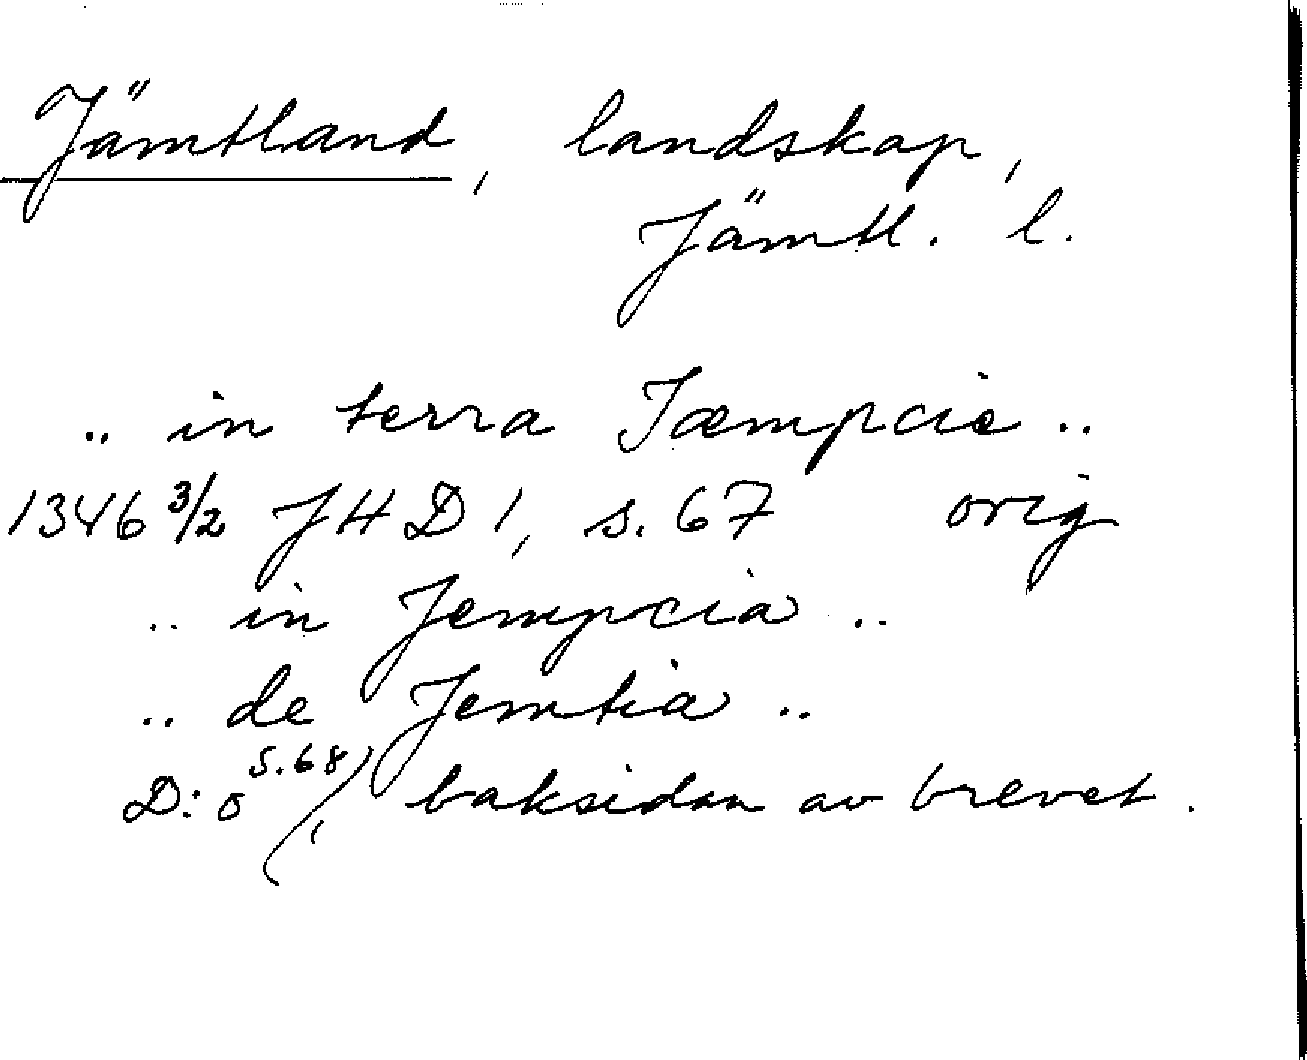 Jämtland, landskap,
Jämtl. l.
.. in terra Jæmpcie ..
1346 3/2 JHD 1, s. 67 orig
.. in Jempcia ..
.. de Jemtia ..
D:o s. 68, baksidan av brevet.